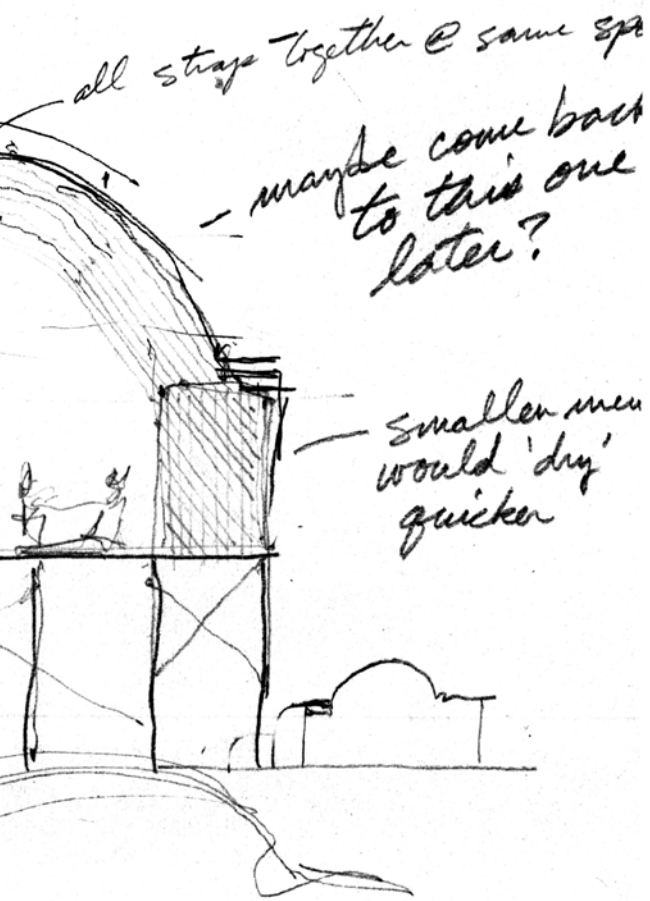 all strap together @ same spe
maybe come back
to this one
later?
smaller mem
would 'dry'
quicker